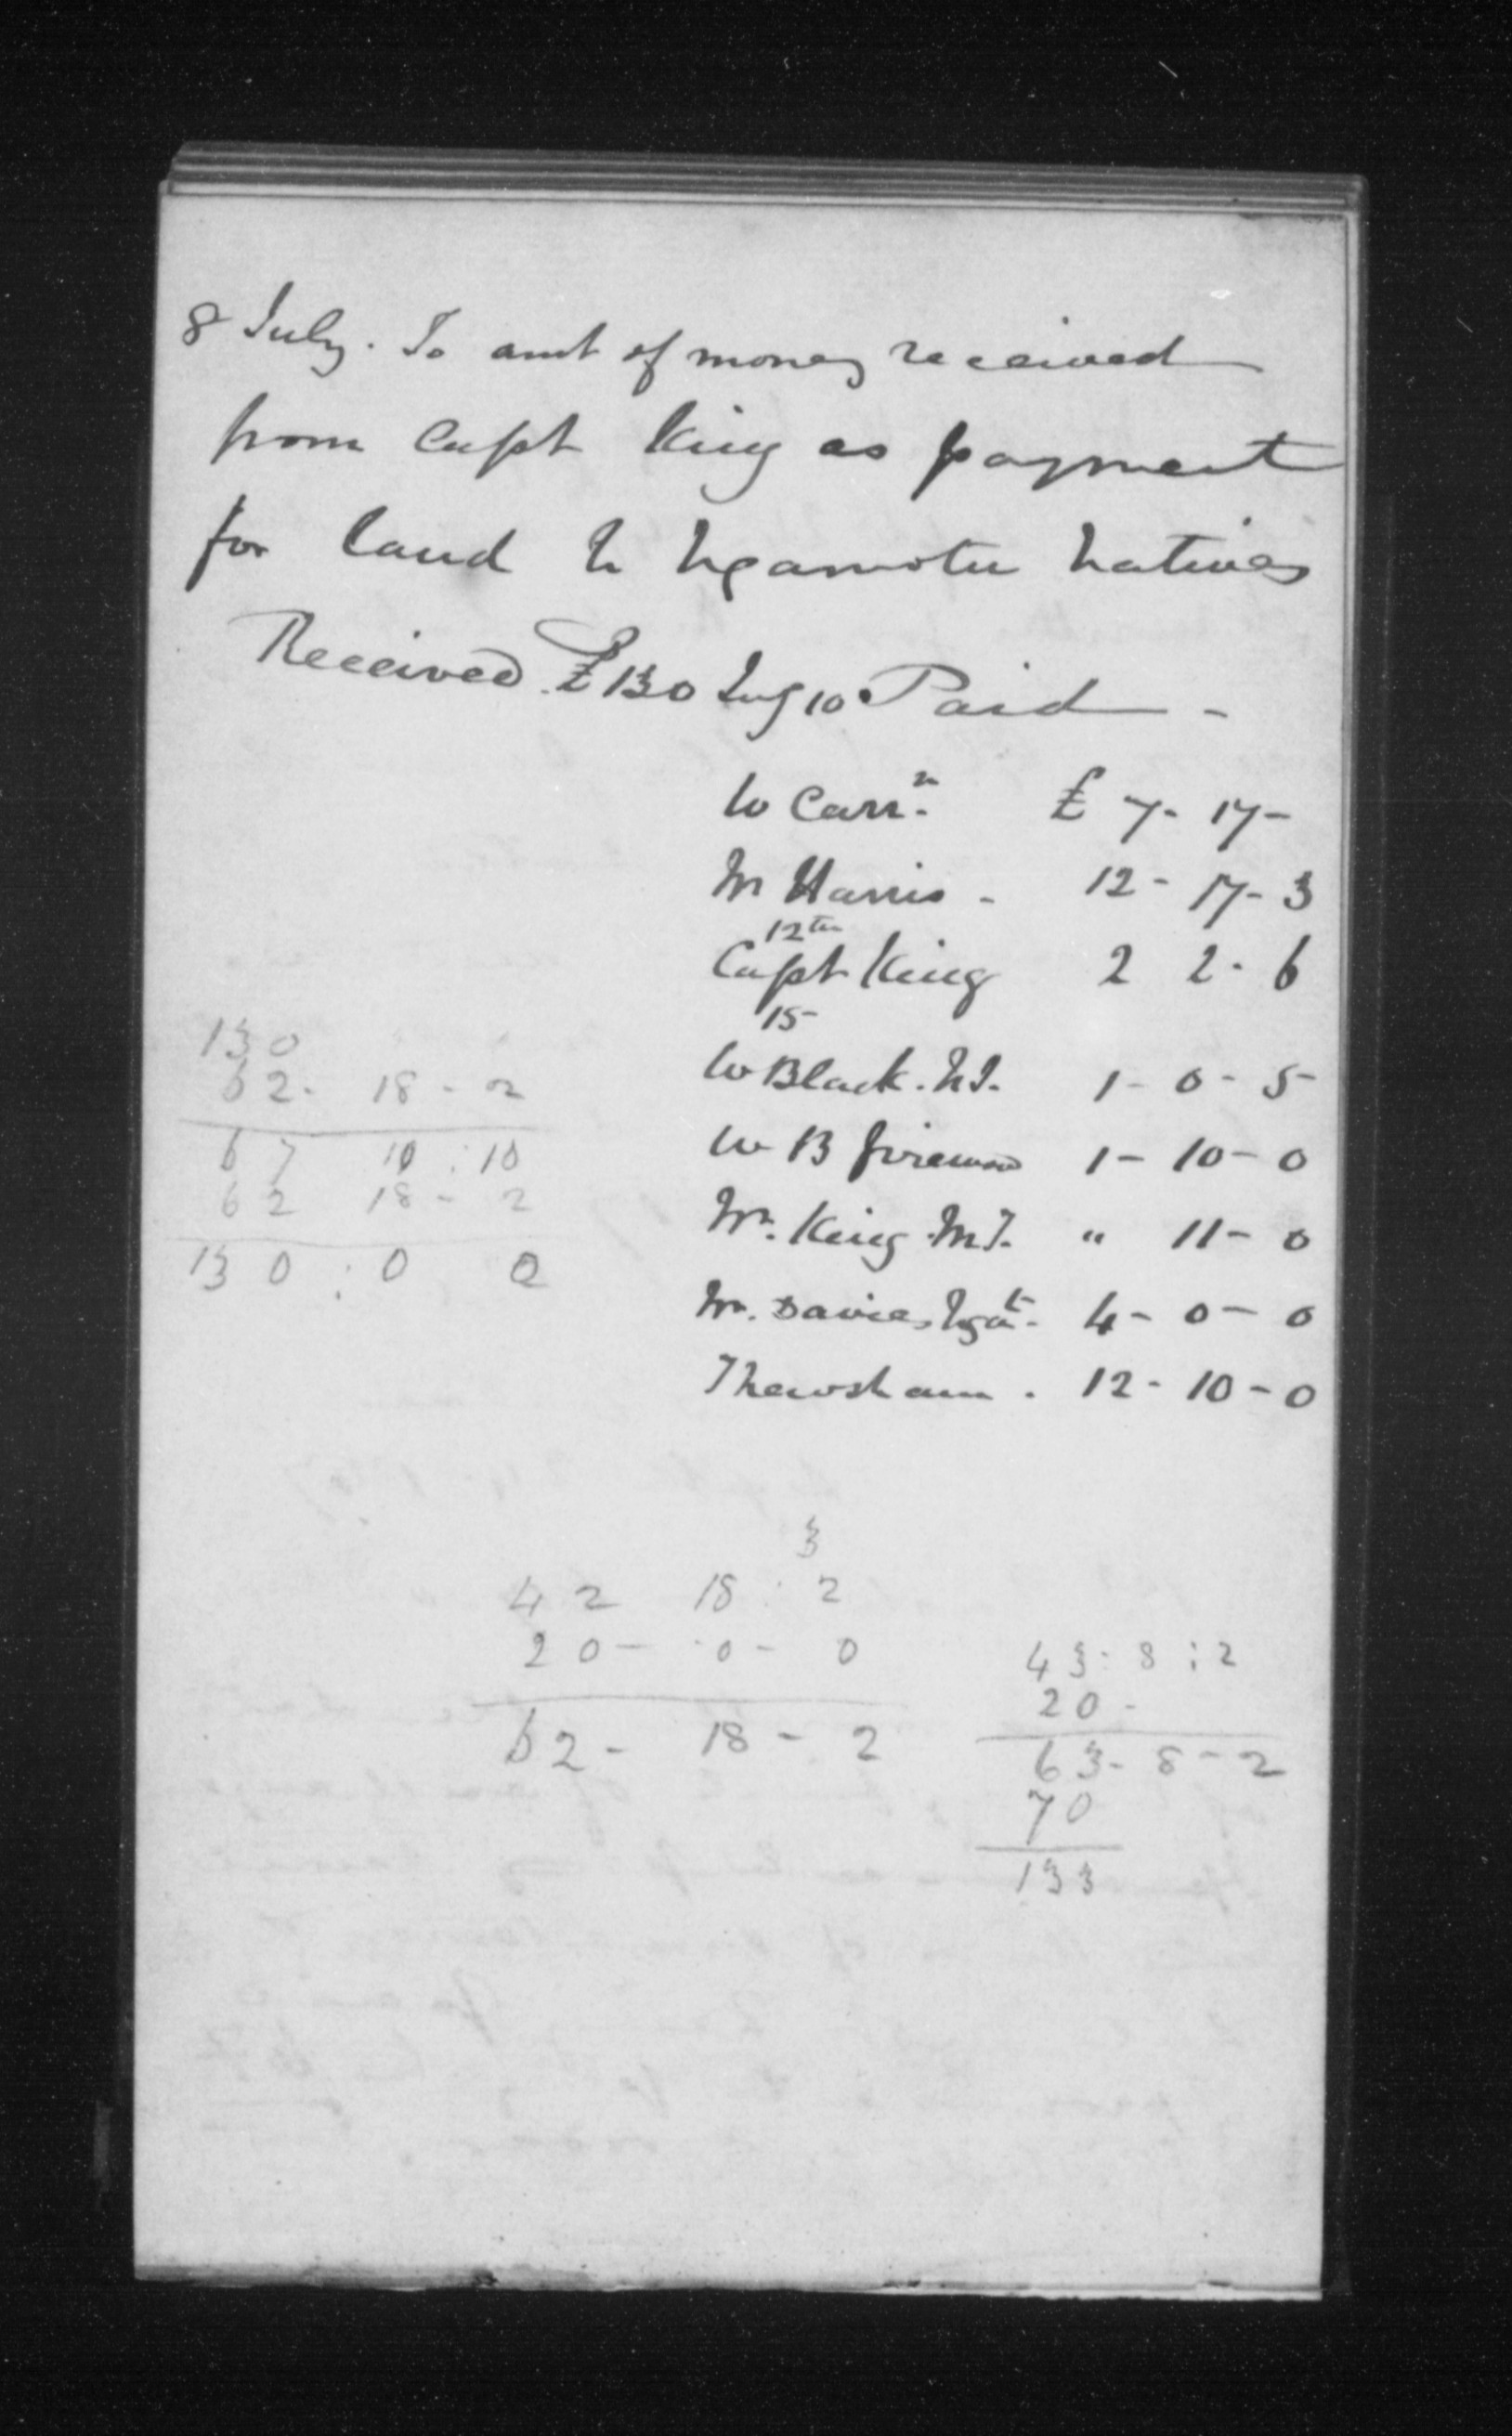 8 July. To amt of money received
from Capt King as payment
for land to Ngamotu natives
Received £130 July 10. Paid -
W Carrn. £ 7- 17-
Mr Harris - 12- 17- 3
12th
Capt King 2 2- 6
15
W Black. N.I. 1- 0- 5
W B 1- 10- 0
Mr. King M.I. " 11- 0
Mr. Davies Ngat. 4- 0- 0
12- 10- 0
130
62- 18- 2
67 10:10
62 18- 2
130:0 0
3
42 18:2
20- 0- 0
62- 18- 2
43:8:2
20-
63-8-2
70
133